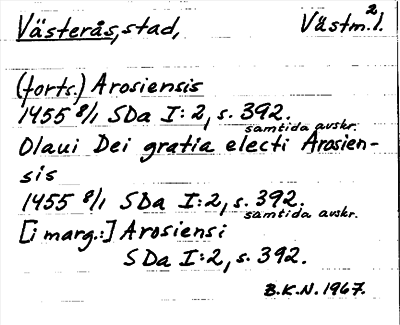 Västerås, stad, Västm. l. 2
(forts.) Arosiensis
1455 8/1 SDa I: 2, s. 392.
samtida avskr.
Olaui Dei gratia electi Arosien-
sis
1455 8/1 SDa I:2, s. 392.
samtida avskr.
[i marg.:] Arosiensi
SDa I:2, s. 392.
B.K.N. 1967.